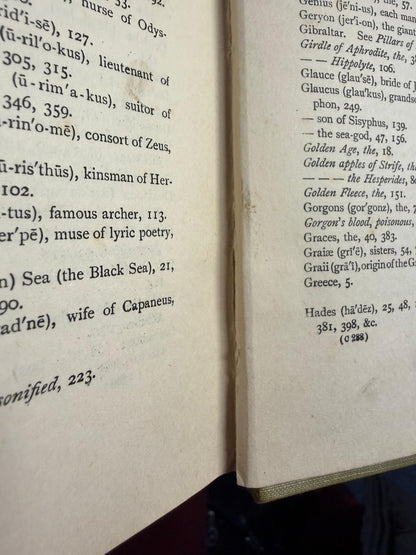 33.
92.
nurse of Odys-
rid'i-sē), 127.
(ū-ril'o-kus), lieutenant of
305, 315.
(ū-rim'a-kus), suitor of
346, 359.
-rin'o-mē), consort of Zeus,
ū-ris'thūs), kinsman of Her-
102.
-tus), famous archer, 113.
er'pē), muse of lyric poetry,
n) Sea (the Black Sea), 21,
90.
ad'nē), wife of Capaneus,
sonified, 223.
the, 57.
Genius (jē'ni-us), each man
Geryon (jer'i-on), the giant
Gibraltar. See Pillars of
Girdle of Aphrodite, the, 3
— — Hippolyte, 106.
Glauce (glau'sē), bride of J
Glaucus (glau'kus), grands
phon, 249.
— son of Sisyphus, 139.
— the sea-god, 47, 156.
Golden Age, the, 18.
Golden apples of Strife, th
— — — the Hesperides, &
Golden Fleece, the, 151.
Gorgons (gor'gonz), the, 7
Gorgon's blood, poisonous,
Graces, the, 40, 383.
Graiæ (grī'ē), sisters, 54,
Graii (grā'ī), origin of the G
Greece, 5.
Hades (hā'dēz), 25, 48,
381, 398, &c.
(C 288)